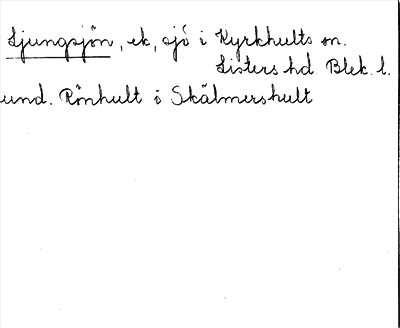 Ljungsjön, ek, sjö i Kyrkhults sn.
Listers hd Blek. l.
und. Rönhult i Skälmershult